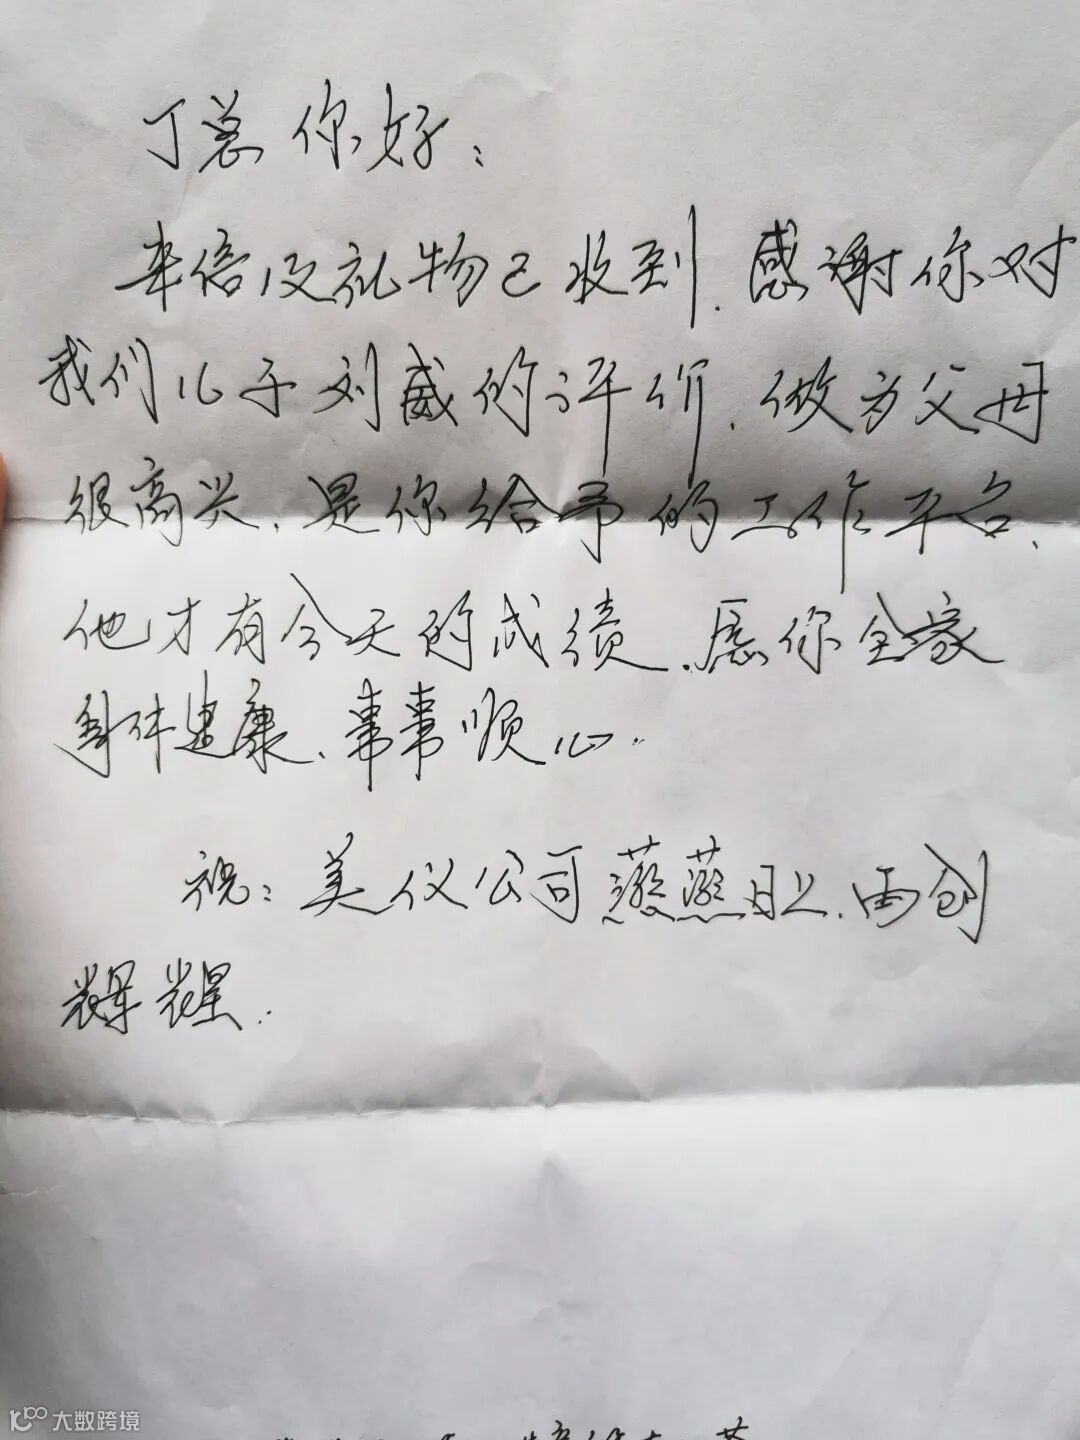 丁总你好:
来信及礼物已收到.感谢你对
我们儿子刘威的评价.做为父母
很高兴.是你给予的工作平台.
他才有今天的成绩.愿你全家
身体健康.事事顺心.
祝:美仪公司蒸蒸日上.再创
辉煌.
大数跨境